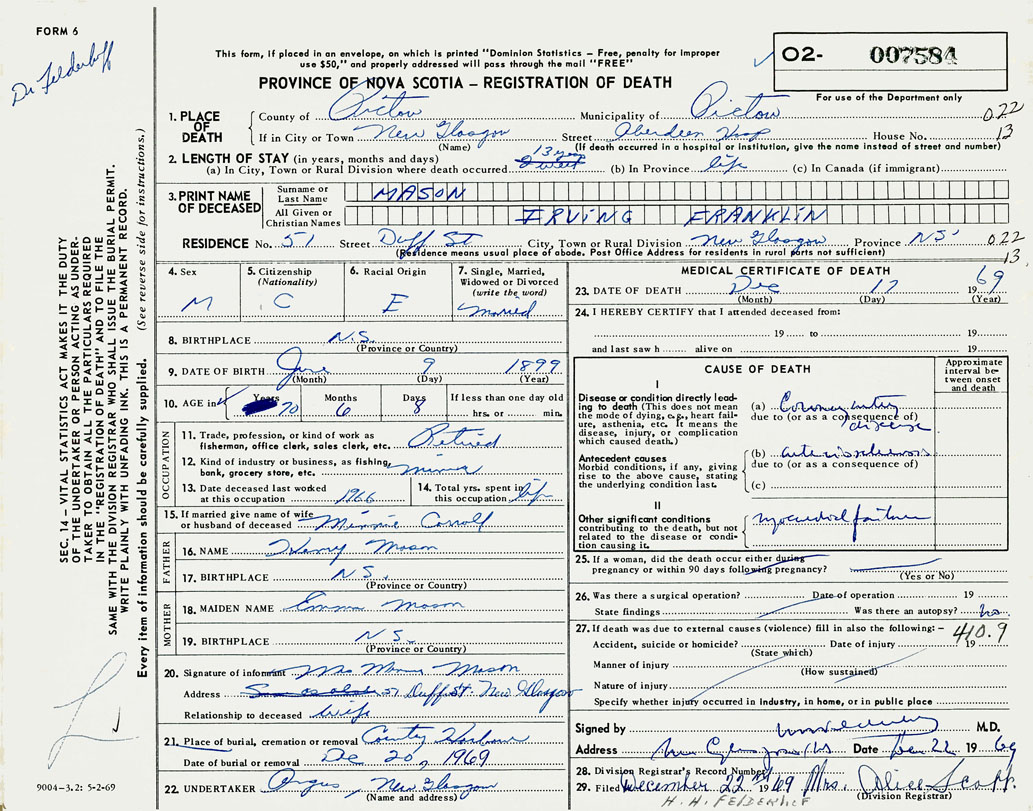 FORM 6
Dr Felderhof
This form, if placed in an envelope, on which is printed "Dominion Statistics – Free, penalty for improper
use $50," and properly addressed will pass through the mail "FREE"
PROVINCE OF NOVA SCOTIA – REGISTRATION OF DEATH
O2- 007584
For use of the Department only
1. PLACE OF DEATH
County of Pictou Municipality of Pictou 022
If in City or Town New Glasgow Street Aberdeen Hosp House No. 13
(Name) (If death occurred in a hospital or institution, give the name instead of street and number)
2. LENGTH OF STAY (in years, months and days) 13 yrs
(a) In City, Town or Rural Division where death occurred (b) In Province life (c) In Canada (if immigrant)
3. PRINT NAME OF DECEASED
Surname or Last Name MASON
All Given or Christian Names IRVING FRANKLIN
RESIDENCE No. 51 Street Duff St City, Town or Rural Division New Glasgow Province NS 022
(Residence means usual place of abode. Post Office Address for residents in rural parts not sufficient) 13.
4. Sex M
5. Citizenship (Nationality) C
6. Racial Origin E
7. Single, Married, Widowed or Divorced (write the word) Married
8. BIRTHPLACE N.S.
(Province or Country)
9. DATE OF BIRTH June 9 1899
(Month) (Day) (Year)
10. AGE in Years 70 Months 6 Days 8 If less than one day old
hrs. or min.
OCCUPATION
11. Trade, profession, or kind of work as
fisherman, office clerk, sales clerk, etc. Retired
12. Kind of industry or business, as fishing,
bank, grocery store, etc. miner
13. Date deceased last worked
at this occupation 1966
14. Total yrs. spent in
this occupation life
15. If married give name of wife
or husband of deceased Minnie Carroll
FATHER
16. NAME Henry Mason
17. BIRTHPLACE N.S.
(Province or Country)
MOTHER
18. MAIDEN NAME Emma Mason
19. BIRTHPLACE N.S.
(Province or Country)
20. Signature of informant Mrs Minnie Mason
Address 51 Duff St. New Glasgow
Relationship to deceased wife
21. Place of burial, cremation or removal County Harbour
Date of burial or removal Dec 20, 1969
22. UNDERTAKER Angus, New Glasgow
(Name and address)
MEDICAL CERTIFICATE OF DEATH
23. DATE OF DEATH Dec 17 1969
(Month) (Day) (Year)
24. I HEREBY CERTIFY that I attended deceased from:
19 to 19
and last saw h alive on 19
CAUSE OF DEATH
Approximate interval between onset and death
I
Disease or condition directly leading
to death (This does not mean
the mode of dying, e.g., heart failure,
asthenia, etc. It means the
disease, injury, or complication
which caused death.)
(a) Coronary artery
due to (or as a consequence of)
disease
Antecedent causes
Morbid conditions, if any, giving
rise to the above cause, stating
the underlying condition last.
(b) arteriosclerosis
due to (or as a consequence of)
(c)
II
Other significant conditions
contributing to the death, but not
related to the disease or condition
causing it.
myocardial failure
25. If a woman, did the death occur either during
pregnancy or within 90 days following pregnancy?
(Yes or No)
26. Was there a surgical operation? Date of operation 19
State findings Was there an autopsy? no
27. If death was due to external causes (violence) fill in also the following: – 410.9
Accident, suicide or homicide? Date of injury 19
(State which)
Manner of injury
(How sustained)
Nature of injury
Specify whether injury occurred in Industry, in home, or in public place
Signed by M.D.
Address New Glasgow NS Date Dec 22 1969
28. Division Registrar's Record Number
29. Filed December 22nd 1969 Mrs. Alice Scott
(Division Registrar)
H. H. FELDERHOF
SEC. 14 – VITAL STATISTICS ACT MAKES IT THE DUTY
OF THE UNDERTAKER OR PERSON ACTING AS UNDERTAKER
TO OBTAIN ALL THE PARTICULARS REQUIRED
IN THE "REGISTRATION OF DEATH" AND TO FILE THE
SAME WITH THE DIVISION REGISTRAR WHO SHALL ISSUE THE BURIAL PERMIT.
WRITE PLAINLY WITH UNFADING INK. THIS IS A PERMANENT RECORD.
Every item of information should be carefully supplied. (See reverse side for instructions.)
9004–3.2: 5-2-69